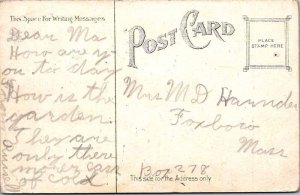 This Space For Writing Messages
POST CARD
PLACE
STAMP HERE
Dear Ma
How are y
ou to day
How is the
garden
They are
only three
of
Mrs M D
Foxboro
Mass
Box 278
This side for the Address only